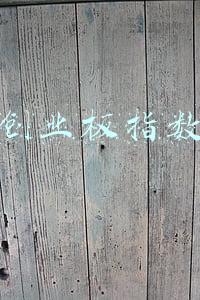 创业板指数